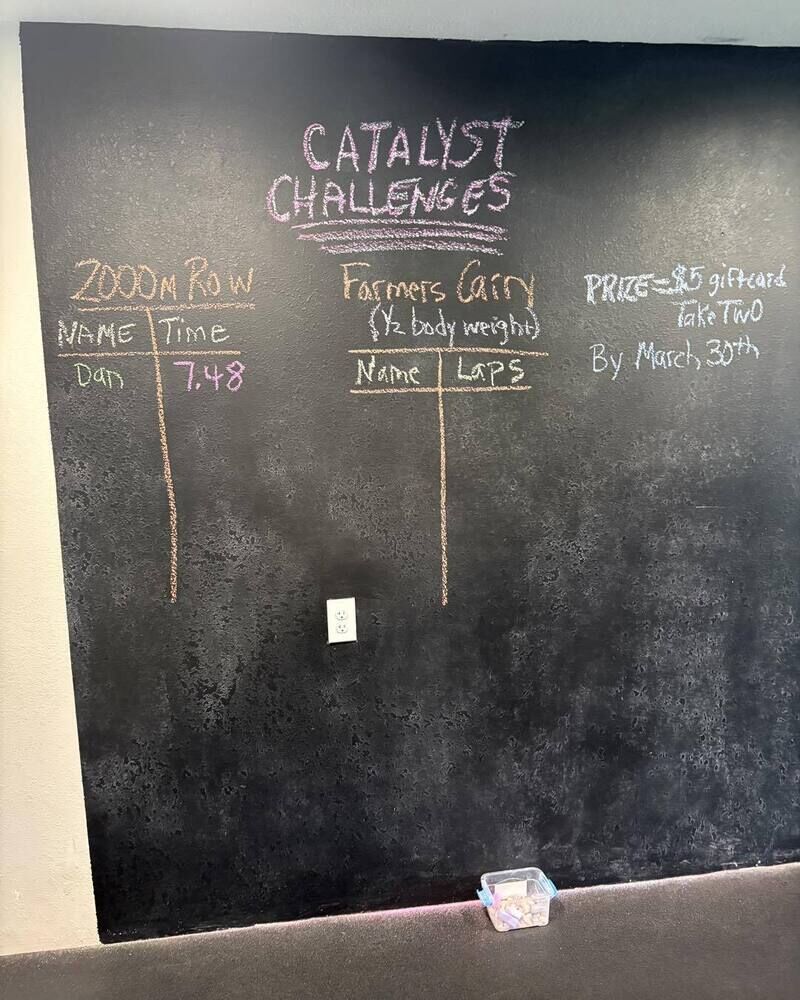 CATALYST
CHALLENGES
2000M ROW
NAME Time
Dan 7.48
Farmers Carry
(1/2 body weight)
Name Laps
PRIZE = $5 giftcard
Take TWO
By March 30th